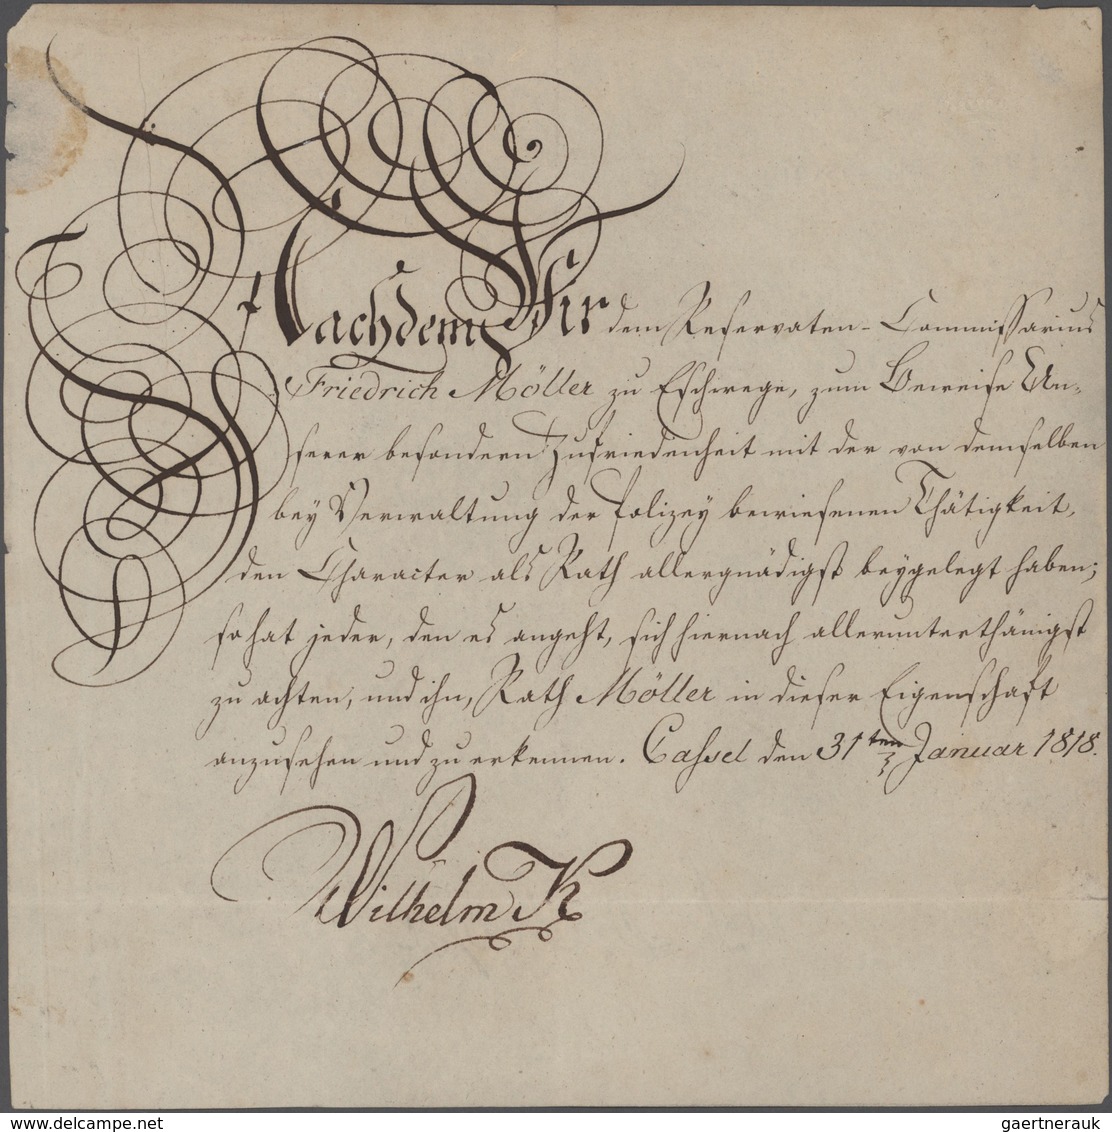 Nachdem Wir dem Reservaten-Commissarius
Friedrich Möller zu Eschwege, zum Beweise Un-
serer besondern Zufriedenheit mit der von demselben
bey Verwaltung der Polizey bewiesenen Thätigkeit,
den Character als Rath allergnädigst beygelegt haben;
so hat jeder, den es angeht, sich hiernach allerunterthänigst
zu achten, und ihn, Rath Möller in dieser Eigenschaft
anzusehen und zu erkennen. Cassel den 31ten Januar 1818.
Wilhelm K
www.delcampe.net
gaertnerauk